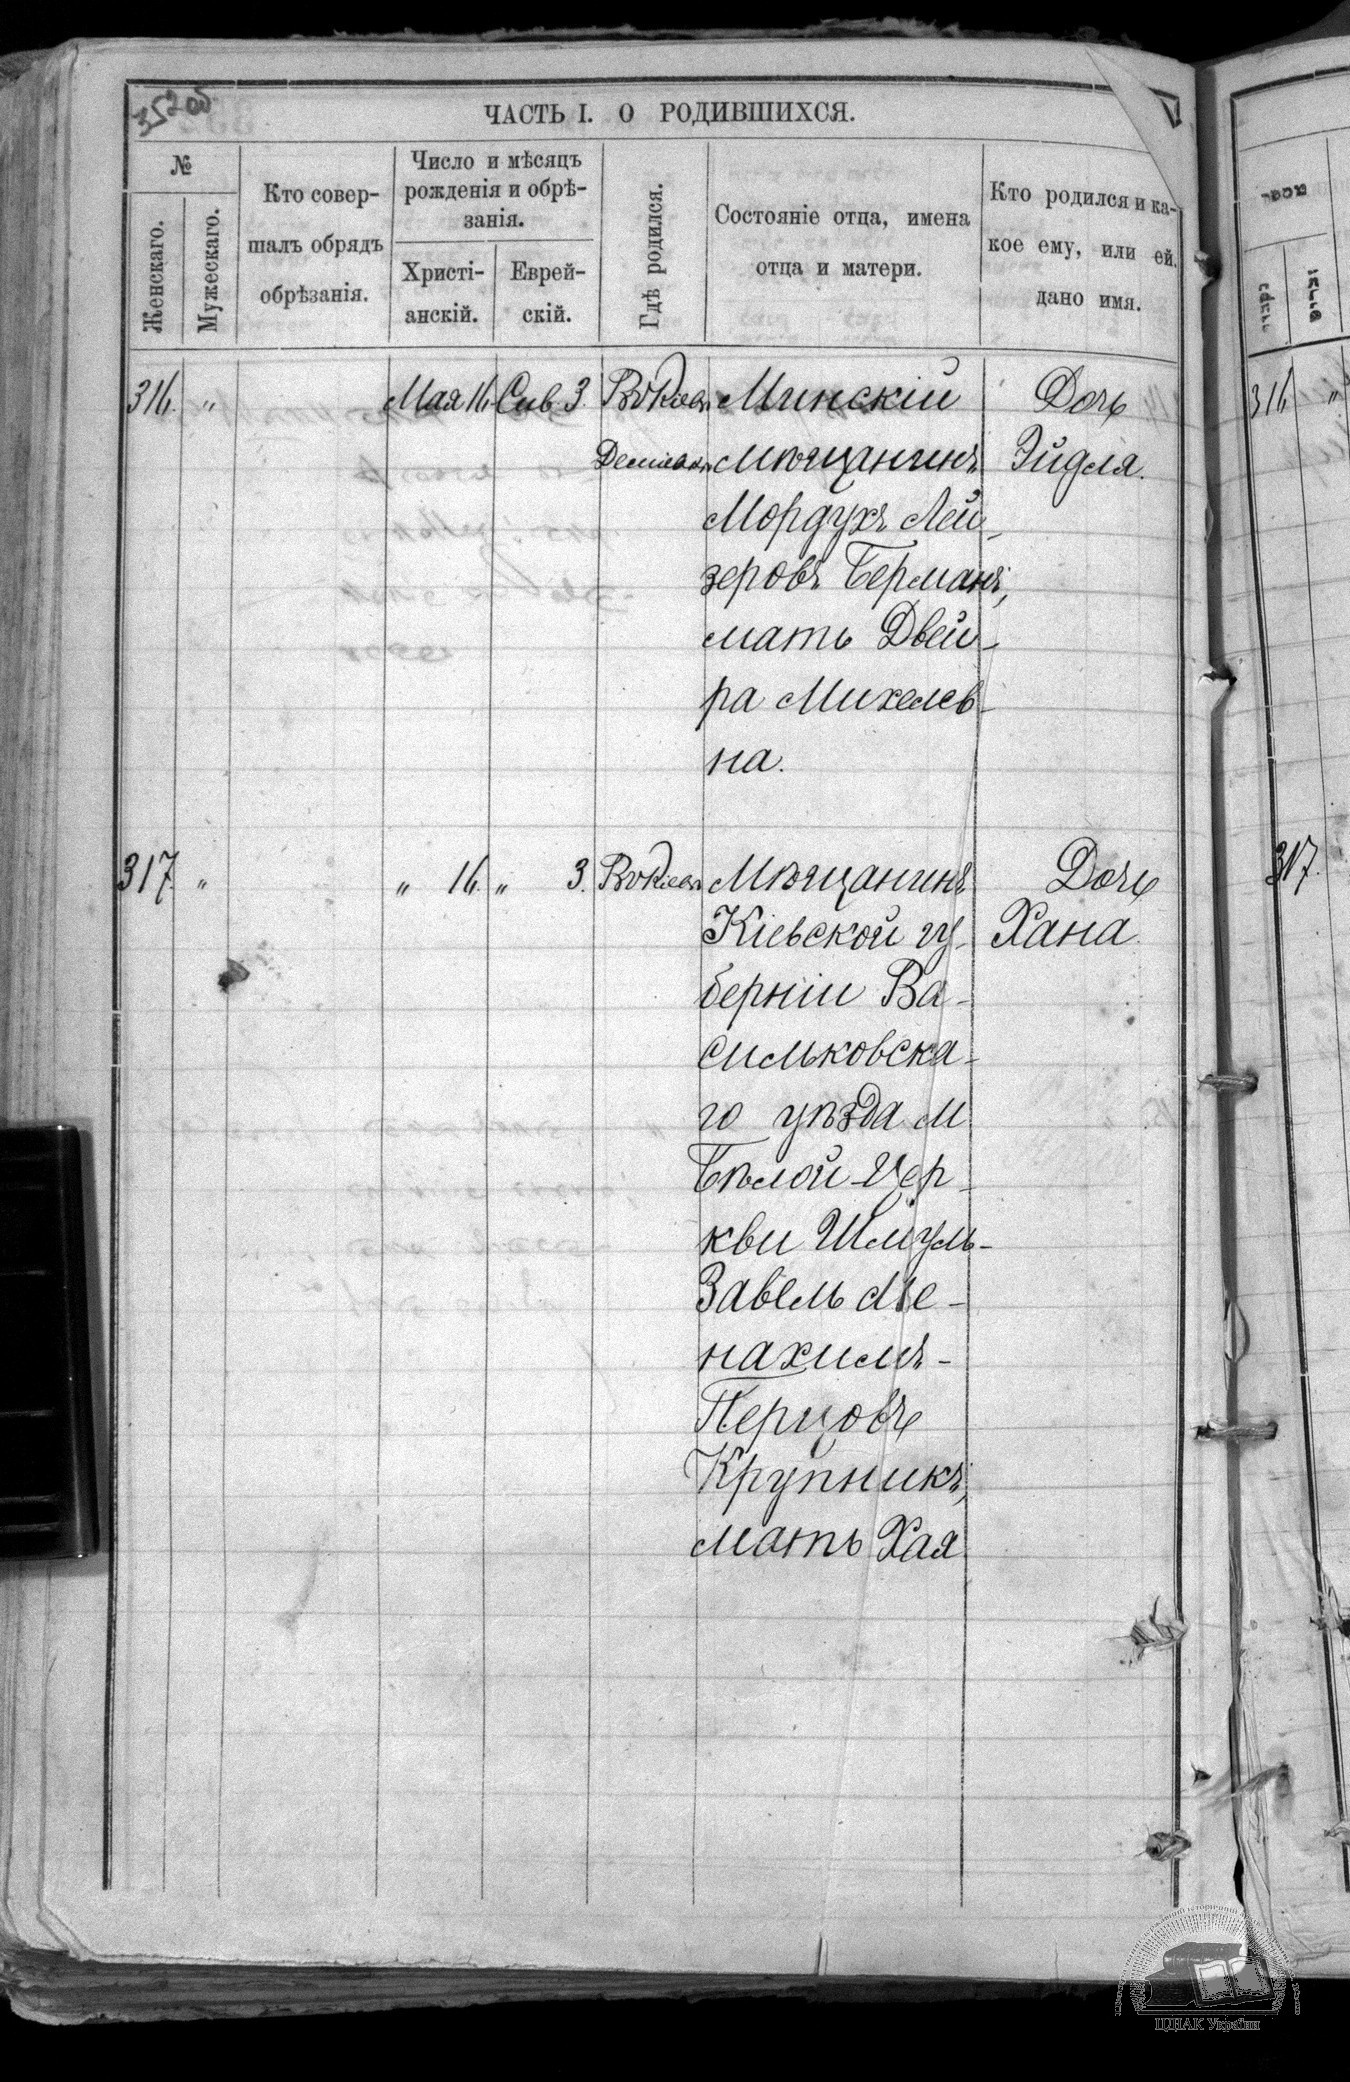 352 об
ЧАСТЬ I. О РОДИВШИХСЯ.
№
Женскаго.
Мужескаго.
Кто совер-
шалъ обрядъ
обрѣзанія.
Число и мѣсяцъ
рожденія и обрѣ-
занія.
Христі-
анскій.
Еврей-
скій.
Гдѣ родился.
Состояніе отца, имена
отца и матери.
Кто родился и ка-
кое ему, или ей.
дано имя.
316. " Мая 16 Сив 3. Въ Кіевѣ Минскій Дочь
мѣщанинъ Эйдля.
Мордухъ Лей-
зеровъ Берманъ,
мать Двей-
ра Михелев-
на.
317. " " 16. " 3. Въ Кіевѣ Мѣщанинъ Дочь
Кіевской гу- Хана.
берніи Ва-
сильковска-
го уѣзда м
Бѣлой-Цер-
кви Шмуль-
Завель Ме-
нахимъ-
Перцовъ
Крупникъ,
мать Хая
316 "
317.
ЦДІАК України